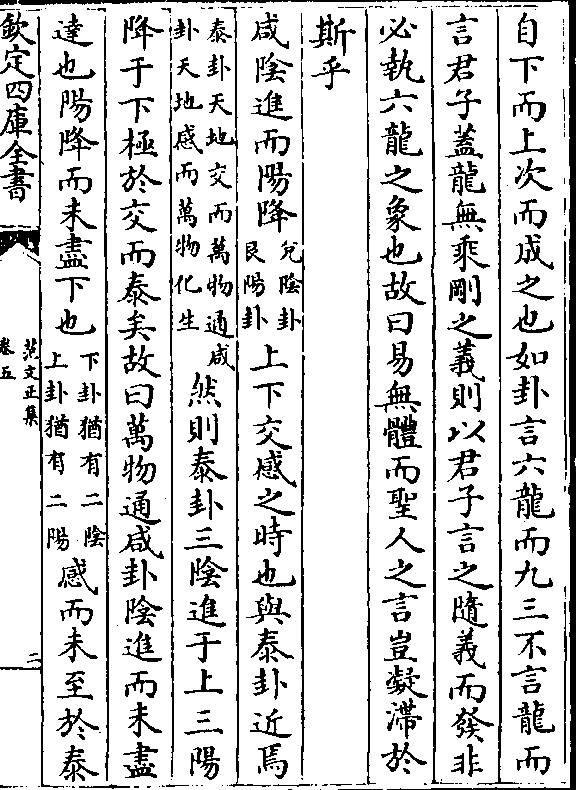 自下而上次而成之也如卦言六龍而九三不言龍而
言君子蓋龍無乘剛之義則以君子言之隨義而發非
必執六龍之象也故曰易無體而聖人之言豈凝滯於
斯乎
咸陰進而陽降兌陰卦艮陽卦上下交感之時也與泰卦近焉
泰卦天地交而萬物通咸卦天地感而萬物化生然則泰卦三陰進于上三陽
降于下極於交而泰矣故曰萬物通咸卦陰進而未盡
達也陽降而未盡下也下卦猶有二陰上卦猶有二陽感而未至於泰
欽定四庫全書
范文正集
卷五
二